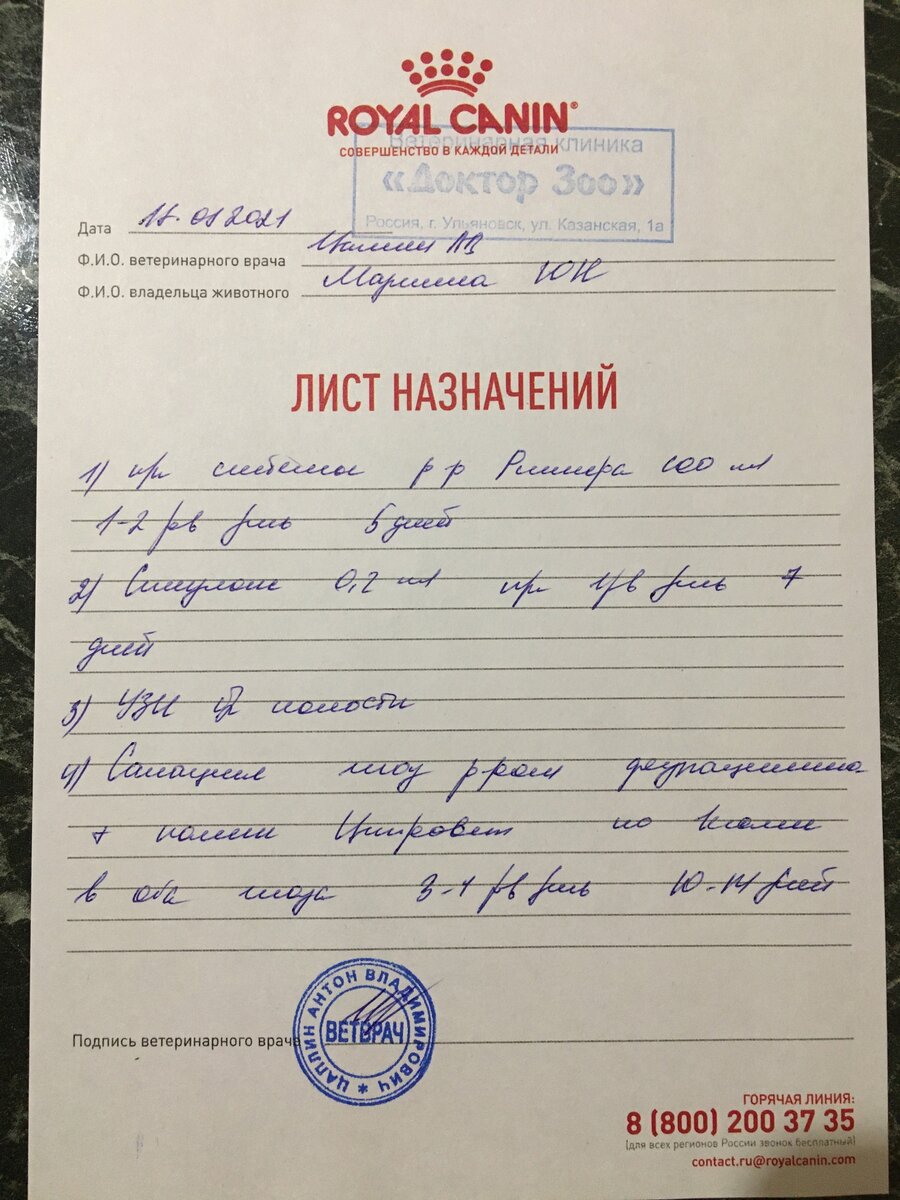 ROYAL CANIN®
СОВЕРШЕНСТВО В КАЖДОЙ ДЕТАЛИ
Ветеринарная клиника
«Доктор Зоо»
Россия, г. Ульяновск, ул. Казанская, 1а
Дата .01 2021
Ф.И.О. ветеринарного врача Цаплин АВ
Ф.И.О. владельца животного ЮН
ЛИСТ НАЗНАЧЕНИЙ
1) системы р р Рингера 100 мл
1-2 р в день 5 дней
2) Синулокс 0,2 мл 1 р в день 7
дней
3) УЗИ бр полости
4) Санация глаз р ром фурацилина
+ капли Ципровет по 1 капли
в оба глаза 3-4 р в день 10-14 дней
Подпись ветеринарного врача
ЦАПЛИН АНТОН ВЛАДИМИРОВИЧ *
ВЕТВРАЧ
ГОРЯЧАЯ ЛИНИЯ:
8 (800) 200 37 35
(для всех регионов России звонок бесплатный)
contact.ru@royalcanin.com